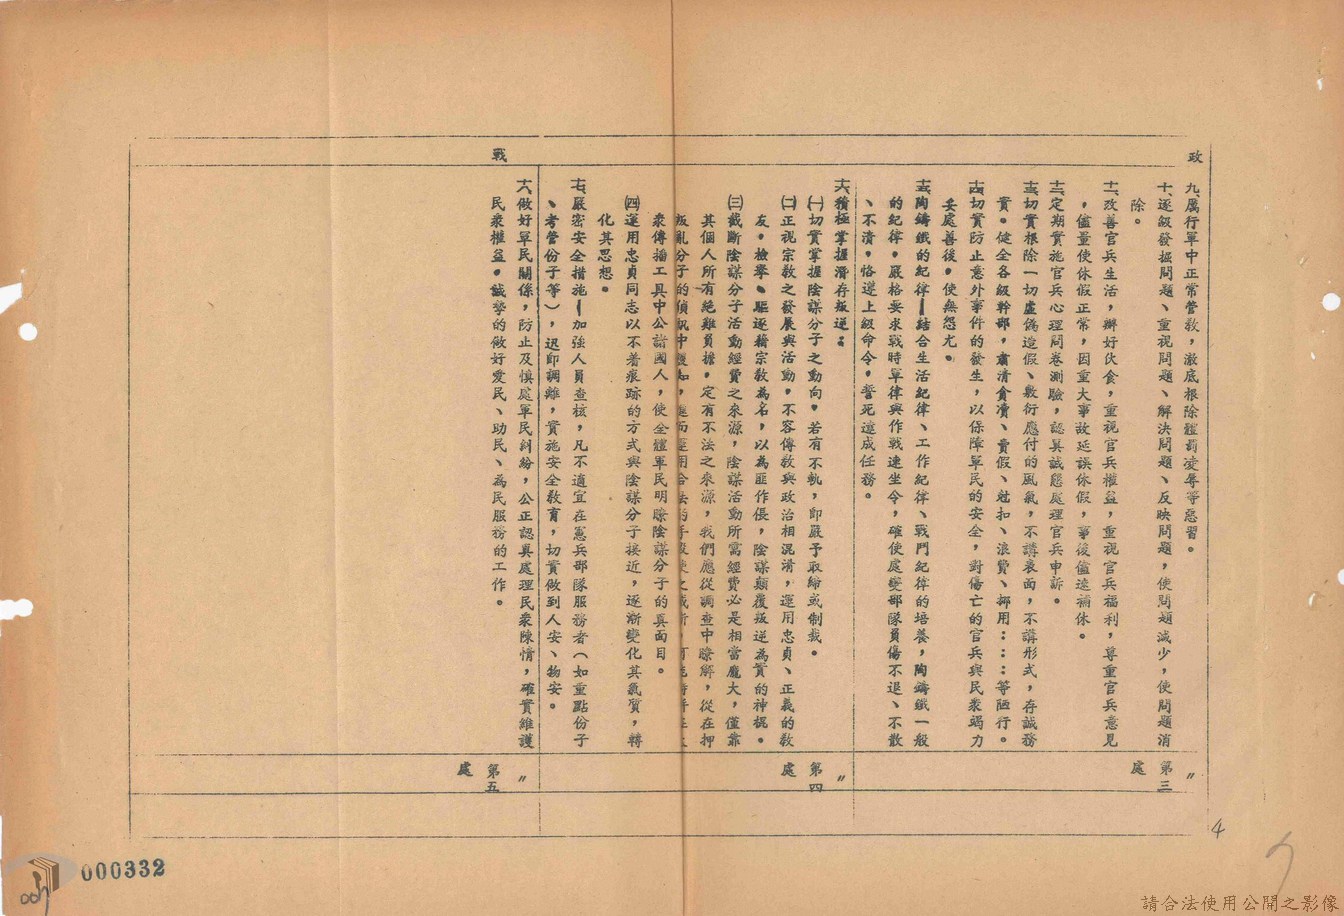 政
九、厲行軍中正常管教,澈底根除體罰凌辱等惡習。
十、逐級發掘問題、重視問題、解決問題、反映問題,使問題減少,使問題消
除。
十一、改善官兵生活,辦好伙食,重視官兵權益,重視官兵福利,尊重官兵意見
,儘量使休假正常,因重大事故延誤休假,事後儘速補休。
十二、定期實施官兵心理問卷測驗,認眞誠懇處理官兵申訴。
十三、切實根除一切虛僞造假、敷衍應付的風氣,不講表面,不講形式,存誠務
實。健全各級幹部,肅清貪瀆、賣假、尅扣、浪費、挪用:::等陋行。
十四、切實防止意外事件的發生,以保障軍民的安全,對傷亡的官兵與民衆竭力
妥處善後,使無怨尤。
十五、陶鑄鐵的紀律—結合生活紀律、工作紀律、戰鬥紀律的培養,陶鑄鐵一般
的紀律,嚴格要求戰時軍律與作戰連坐令,確使處變部隊員傷不退、不散
、不潰,恪遵上級命令,誓死達成任務。
十六、積極掌握潛存叛逆:
㈠切實掌握陰謀分子之動向,若有不軌,卽嚴予取締或制裁。
㈡正視宗教之發展與活動,不容傳教與政治相混淆,運用忠貞、正義的教
友,檢舉、驅逐藉宗教為名,以為匪作倀,陰謀顛覆叛逆為實的神棍。
㈢截斷陰謀分子活動經費之來源,陰謀活動所需經費必是相當龐大,僅靠
其個人所有絕難負擔,定有不法之來源,我們應從調查中瞭解,從在押
叛亂分子的偵訊中獲知,進而運用合法的手段使之裁斷
衆傳播工具中公諸國人,使全體軍民明瞭陰謀分子的眞面目。
㈣運用忠貞同志以不着痕跡的方式與陰謀分子接近,逐漸變化其氣質,轉
化其思想。
戰
十七、嚴密安全措施—加強人員查核,凡不適宜在憲兵部隊服務者(如重點份子
、考管份子等),迅卽調離,實施安全教育,切實做到人安、物安。
十八、做好軍民關係,防止及愼處軍民糾紛,公正認眞處理民衆陳情,確實維護
民衆權益,誠摯的做好愛民、助民、為民服務的工作。
〃
第三
處
〃
第四
處
〃
第五
處
4
000332
請合法使用公開之影像